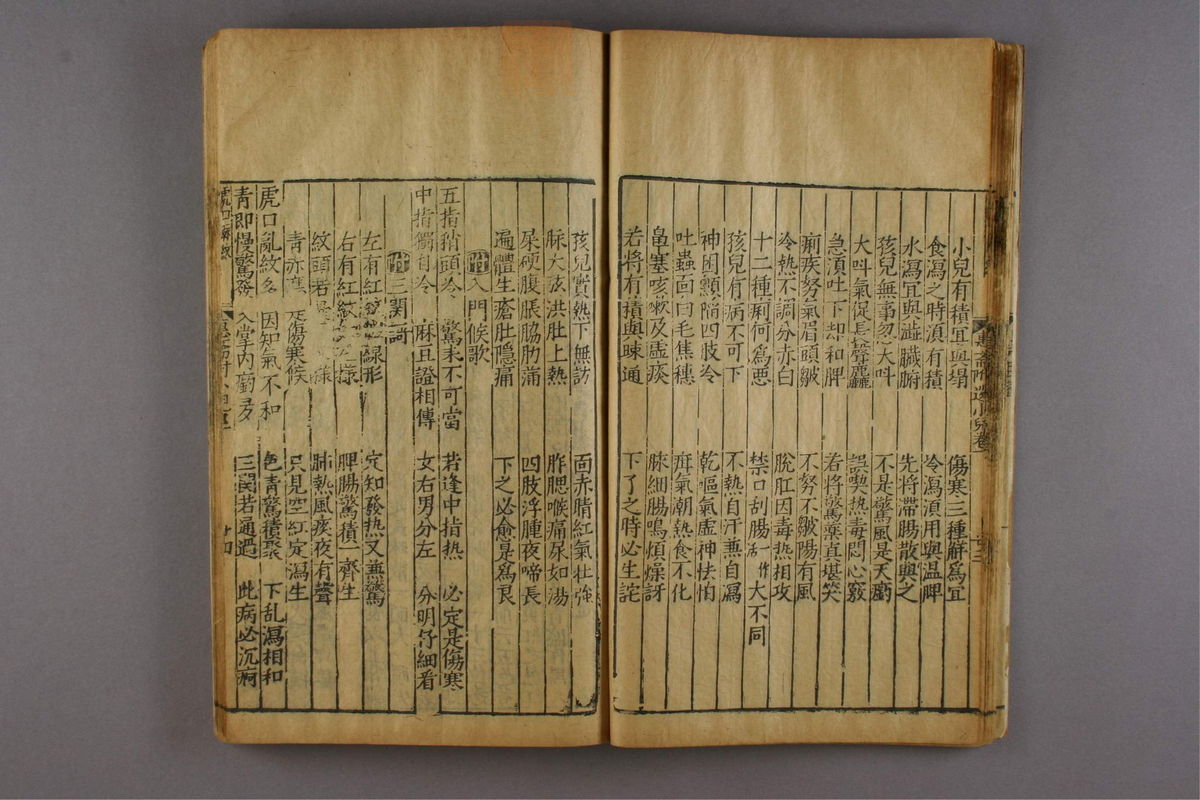 小兒有積宜與塌 傷寒三種解爲宜
食瀉之時湏有積 冷瀉湏用與温脾
水瀉宜與澁臟腑 先將滯腸散與之
孩兒無事忽大叫 不是驚風是天
大叫氣促長聲麤 誤喫熱毒悶心竅
急湏吐下却和脾 若將驚藥真堪笑
痢疾努氣眉頭皺 不努不皺腸有風
冷熱不調分赤白 脫肛因毒熱相攻
十二種痢何爲惡 禁口刮腸一作活大不同
孩兒有病不可下 不熱自汗兼自瀉
神困顖陷四肢冷 乾嘔氣虛神怯怕
吐蟲面白毛焦穗 疳氣潮熱食不化
鼻塞咳嗽及虛痰 脉細腸鳴煩燥訝
若將有積與踈通 下了之時必生詫
孩兒實熱下無訪 面赤睛紅氣壯強
脉大弦洪肚上熱 胙腮喉痛尿如湯
屎硬腹脹脇肋滿 四肢浮腫夜啼長
遍體生瘡肚隱痛 下之必愈是爲良
附入門候歌
五指稍頭冷 驚來不可當 若逢中指熱 必定是傷寒
中指獨自冷 麻且證相傳 女右男分左 分明仔細看
附三關歌
左有紅線形 定知發熱又兼驚
右有紅紋樣 脾腸驚積一齊生
紋頭若樣 肺熱風痰夜有聲
青亦是傷寒候 只見空紅定瀉生
虎口亂紋多 因知氣不和 色青驚積聚 下乱瀉相和
青即慢驚發 入掌内 三関若通過 此病必沉疴